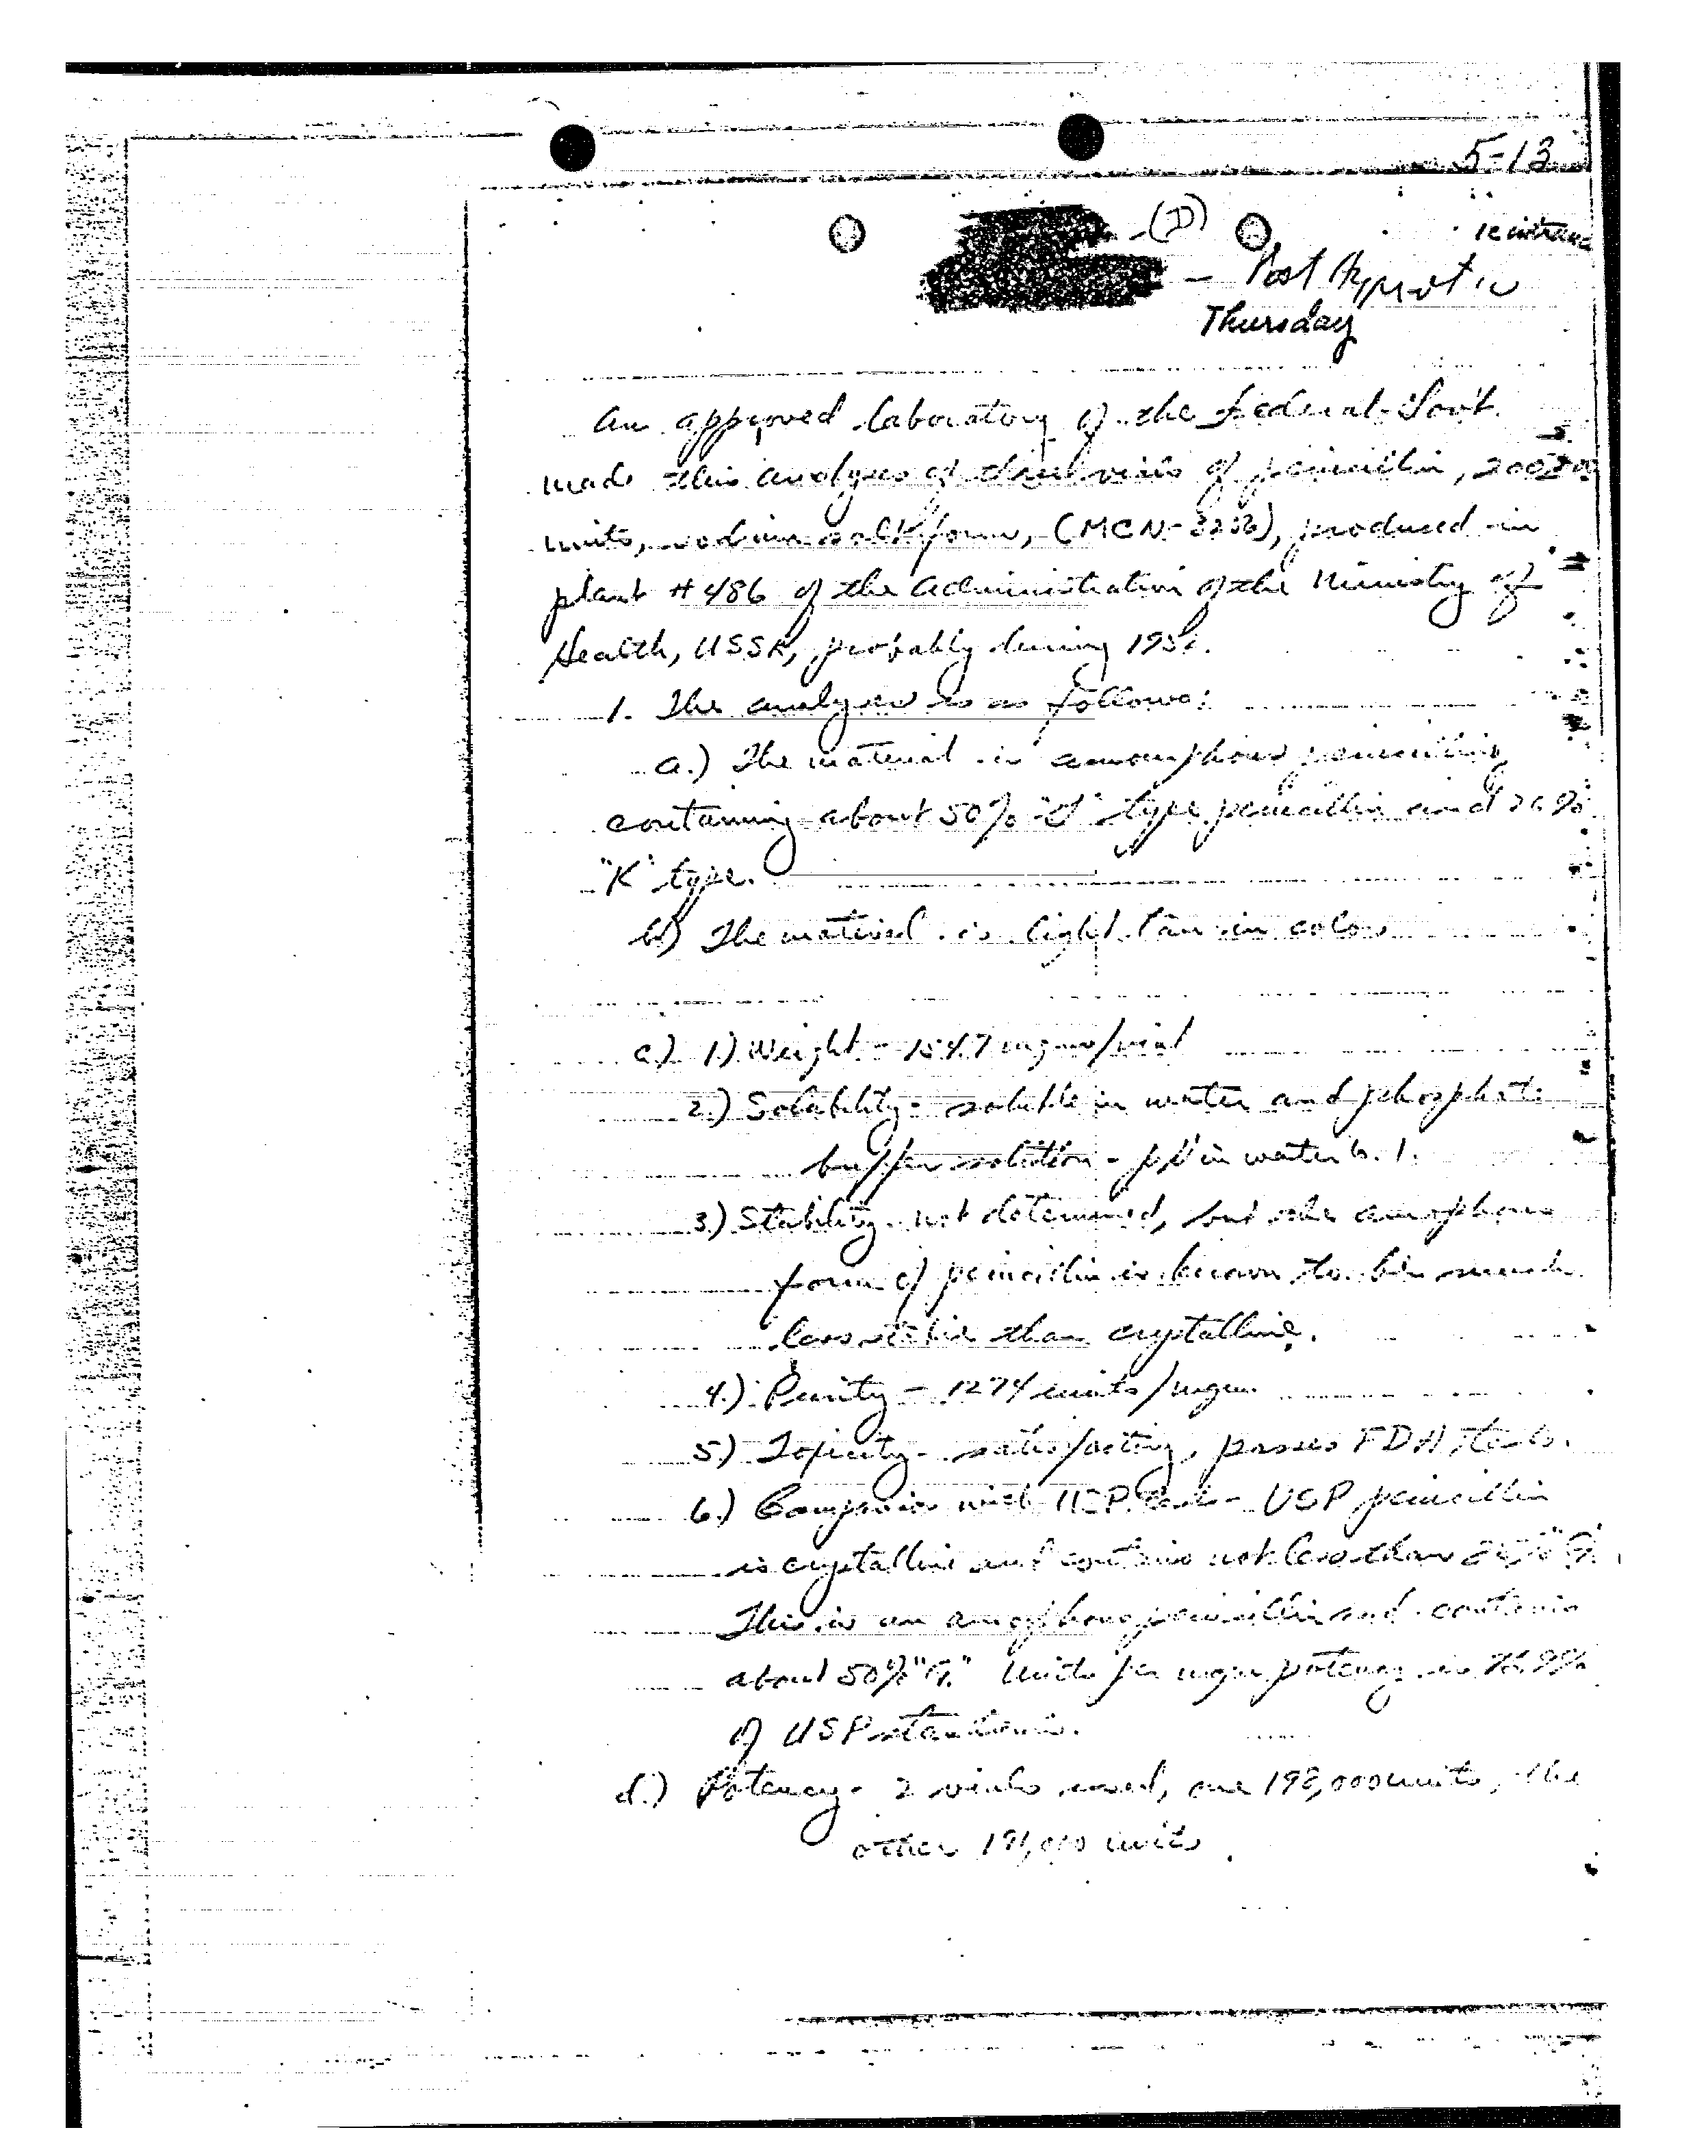 5-13
(D)
- Post Hypnotic
Thursday
An approved laboratory of the Federal Gov't.
made this analyses of three vials of penicillin,
units, sodium salt form, (MCN-3236), produced in
plant #486 of the Administration of the Ministry of
Health, USSR, probably during
1. The analyses is as follows:
a.) The material is amorphous penicillin
containing about 50% "G" type penicillin and
"K" type.
b) The material is light tan in color
c.) 1.) Weight - 154.7 mgms/vial
2.) Solubility - soluble in water and phosphate
buffer solution - pH in water 6.1.
3.) Stability - not determined, but the amorphous
form of penicillin is known to be much
less stable than crystalline.
4.) Purity - 1274 units/mgm.
5.) Toxicity - satisfactory, passes FDA tests.
6.) Comparison with USP - USP penicillin
is crystalline and contains not less than "G".
This is an amorphous penicillin and contains
about 50% "G." Units per mgm potency is
of USP standards.
d.) Potency - 2 vials used, one 198,000 units, the
other units